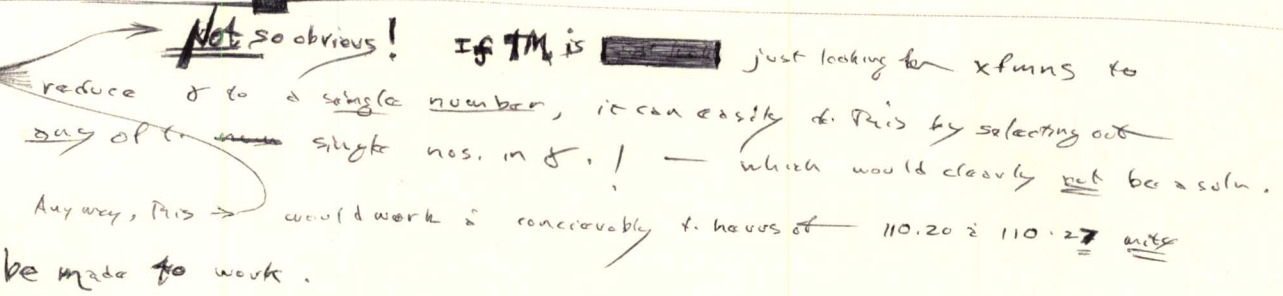 Not so obvious! If TM is just looking for xfmns to
reduce γ to a single number, it can easily do this by selecting out
any of the single nos. in γ.! — which would clearly not be a soln.
Anyway, this → would work & concievably t. heurs of 110.20 & 110.27 might
be made to work.